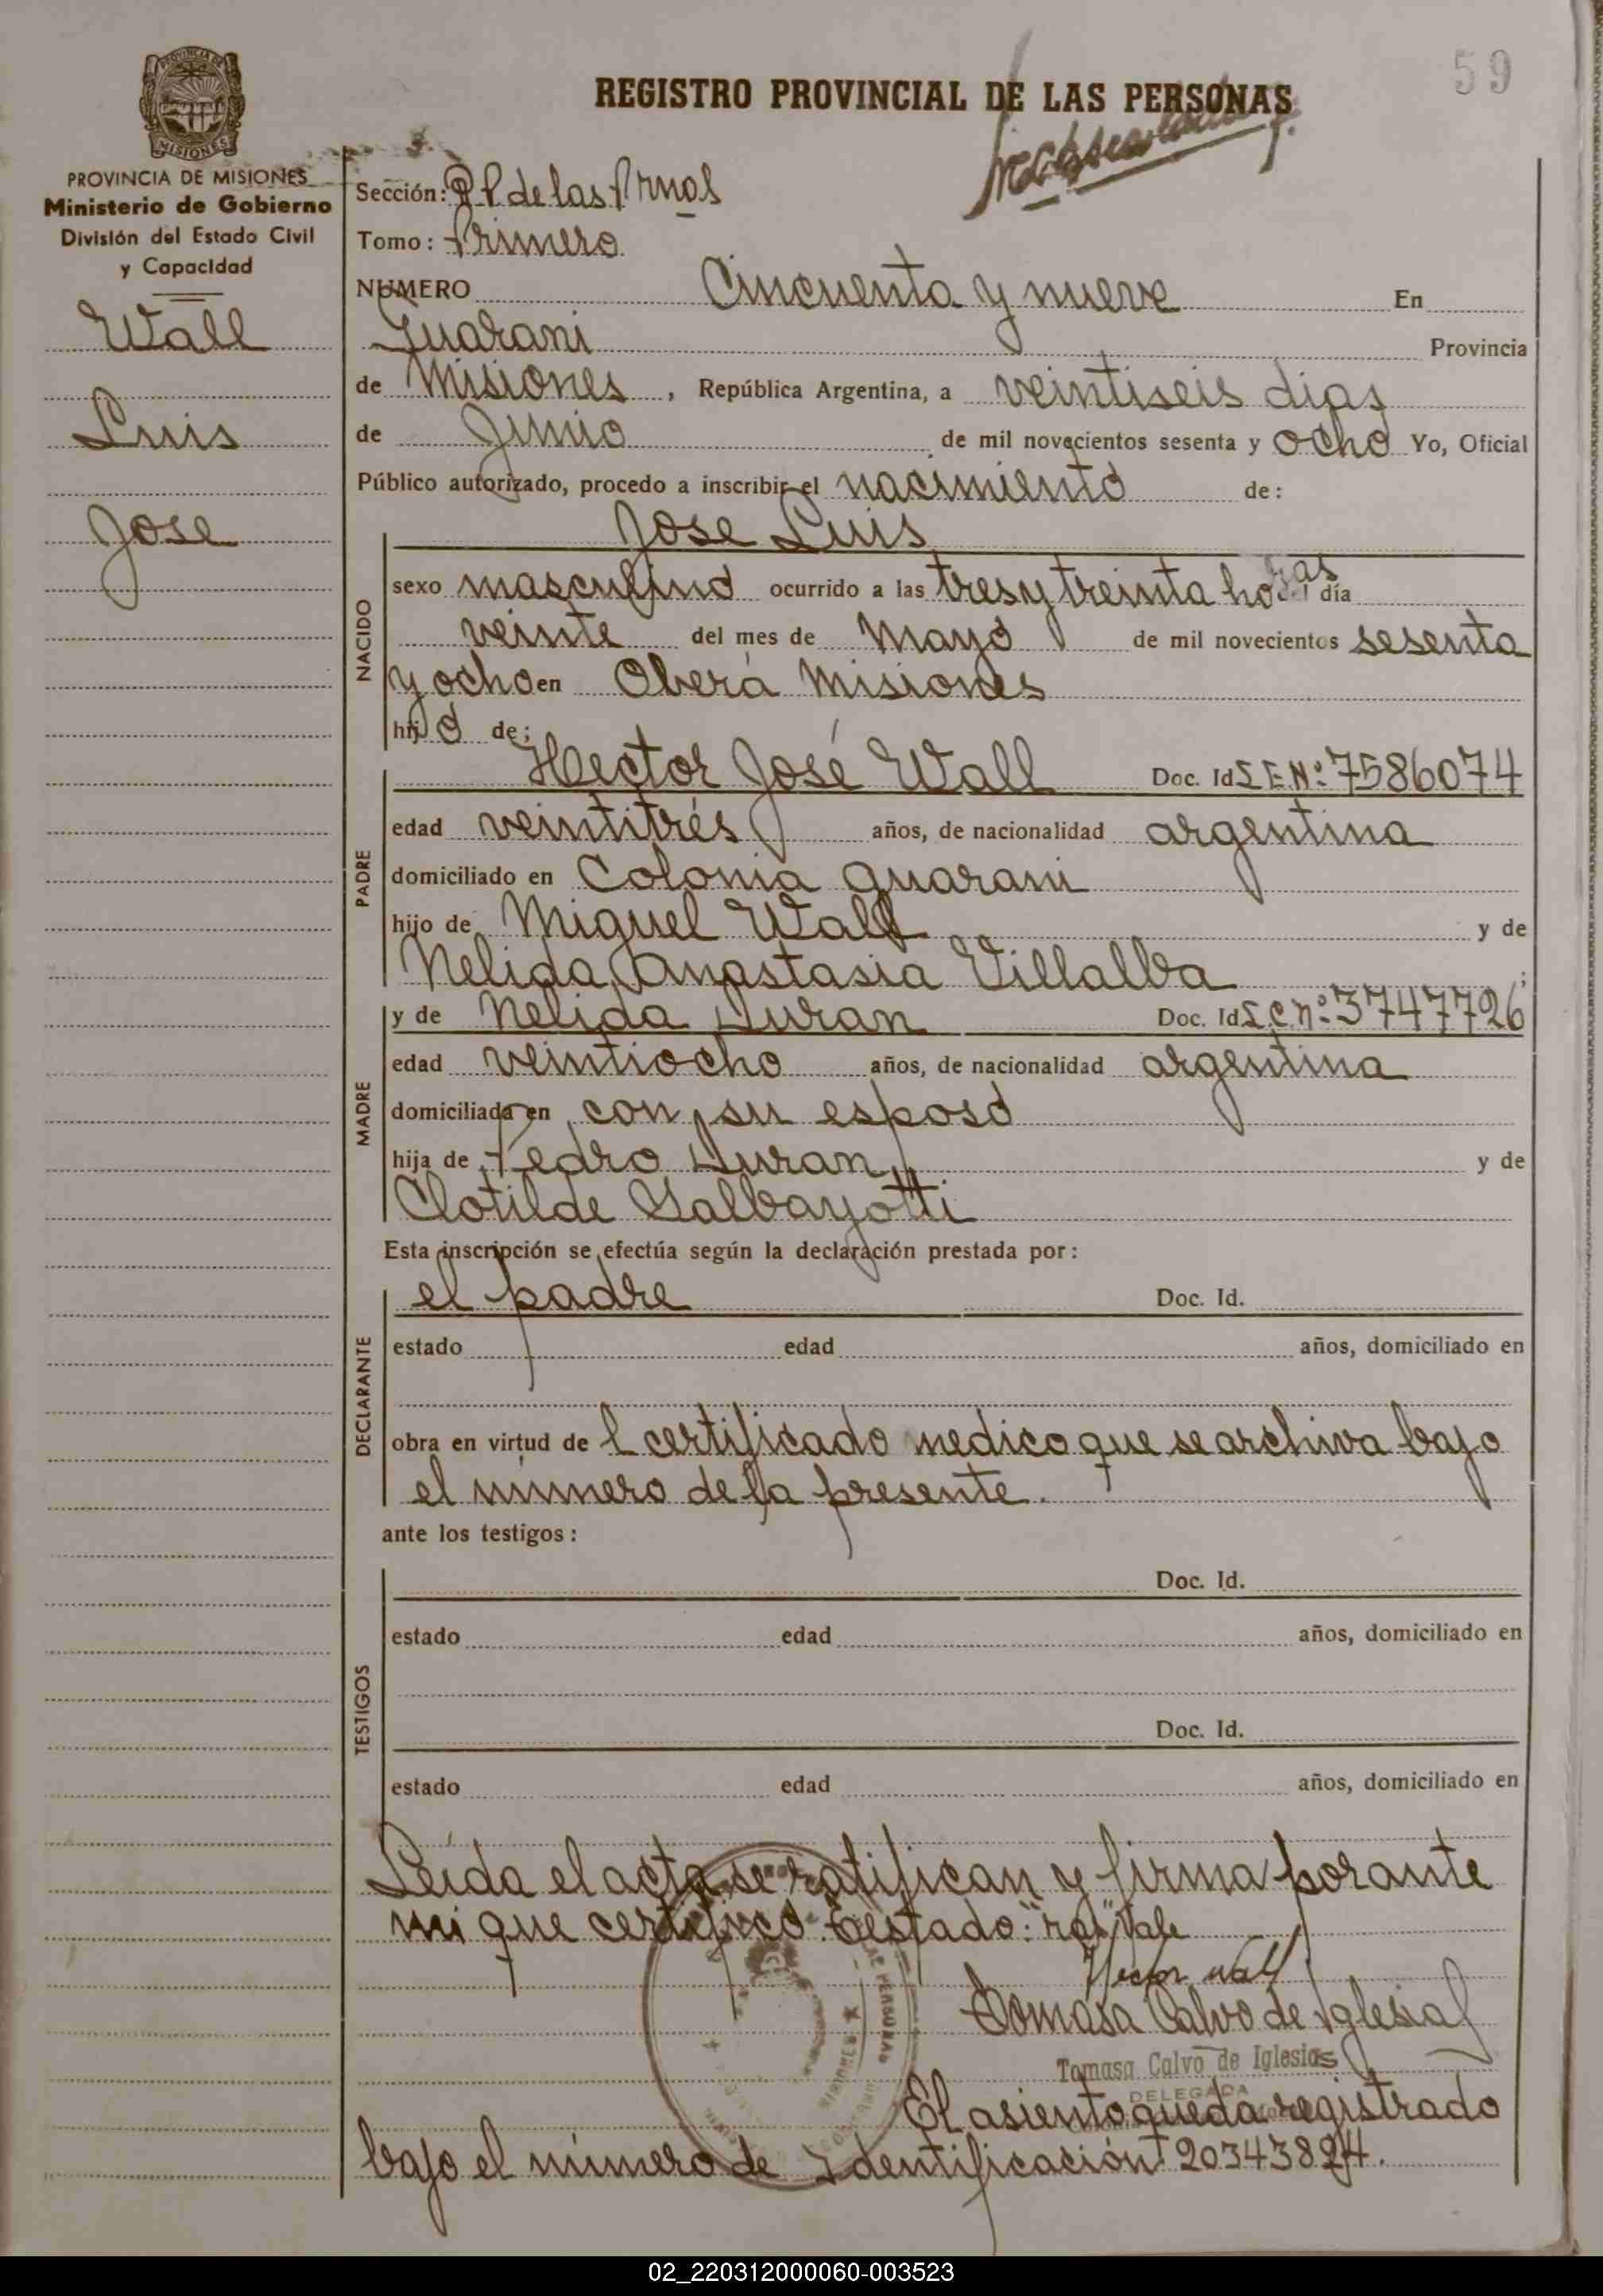 59
REGISTRO PROVINCIAL DE LAS PERSONAS
PROVINCIA DE MISIONES
Ministerio de Gobierno
División del Estado Civil
y Capacidad
Wall
Luis
Jose
Sección: R P de las Prnas
Tomo: Primero
NUMERO Cincuenta y nueve En
Guarani Provincia
de Misiones, República Argentina, a veintiseis dias
de Junio de mil novecientos sesenta y ocho Yo, Oficial
Público autorizado, procedo a inscribir el nacimiento de:
Jose Luis
NACIDO
sexo masculino ocurrido a las tres y treinta horas día
veinte del mes de Mayo de mil novecientos sesenta
y ocho en Oberá Misiones
hijo de:
PADRE
Hector José Wall Doc. Id L E Nº 7586074
edad veintitrés años, de nacionalidad argentina
domiciliado en Colonia guarani
hijo de Miguel Wall y de
Nelida Anastasia Villalba;
MADRE
y de Nelida Duran Doc. Id L.C. nº 3747726
edad veintiocho años, de nacionalidad argentina
domiciliada en con su esposo
hija de Pedro Duran y de
Clotilde Galbayotti
Esta inscripción se efectúa según la declaración prestada por:
DECLARANTE
el padre Doc. Id.
estado edad años, domiciliado en
obra en virtud de l certificado medico que se archiva bajo
el número de la presente.
ante los testigos:
TESTIGOS
Doc. Id.
estado edad años, domiciliado en
Doc. Id.
estado edad años, domiciliado en
Leida el acta se ratifican y firma por ante
mi que certifico. Testado: "ras" Vale
Hector Wall
Tomasa Calvo de Iglesias
Tomasa Calvo de Iglesias
DELEGADA
El asiento queda registrado
bajo el número de Identificación 20343824.
02_220312000060-003523